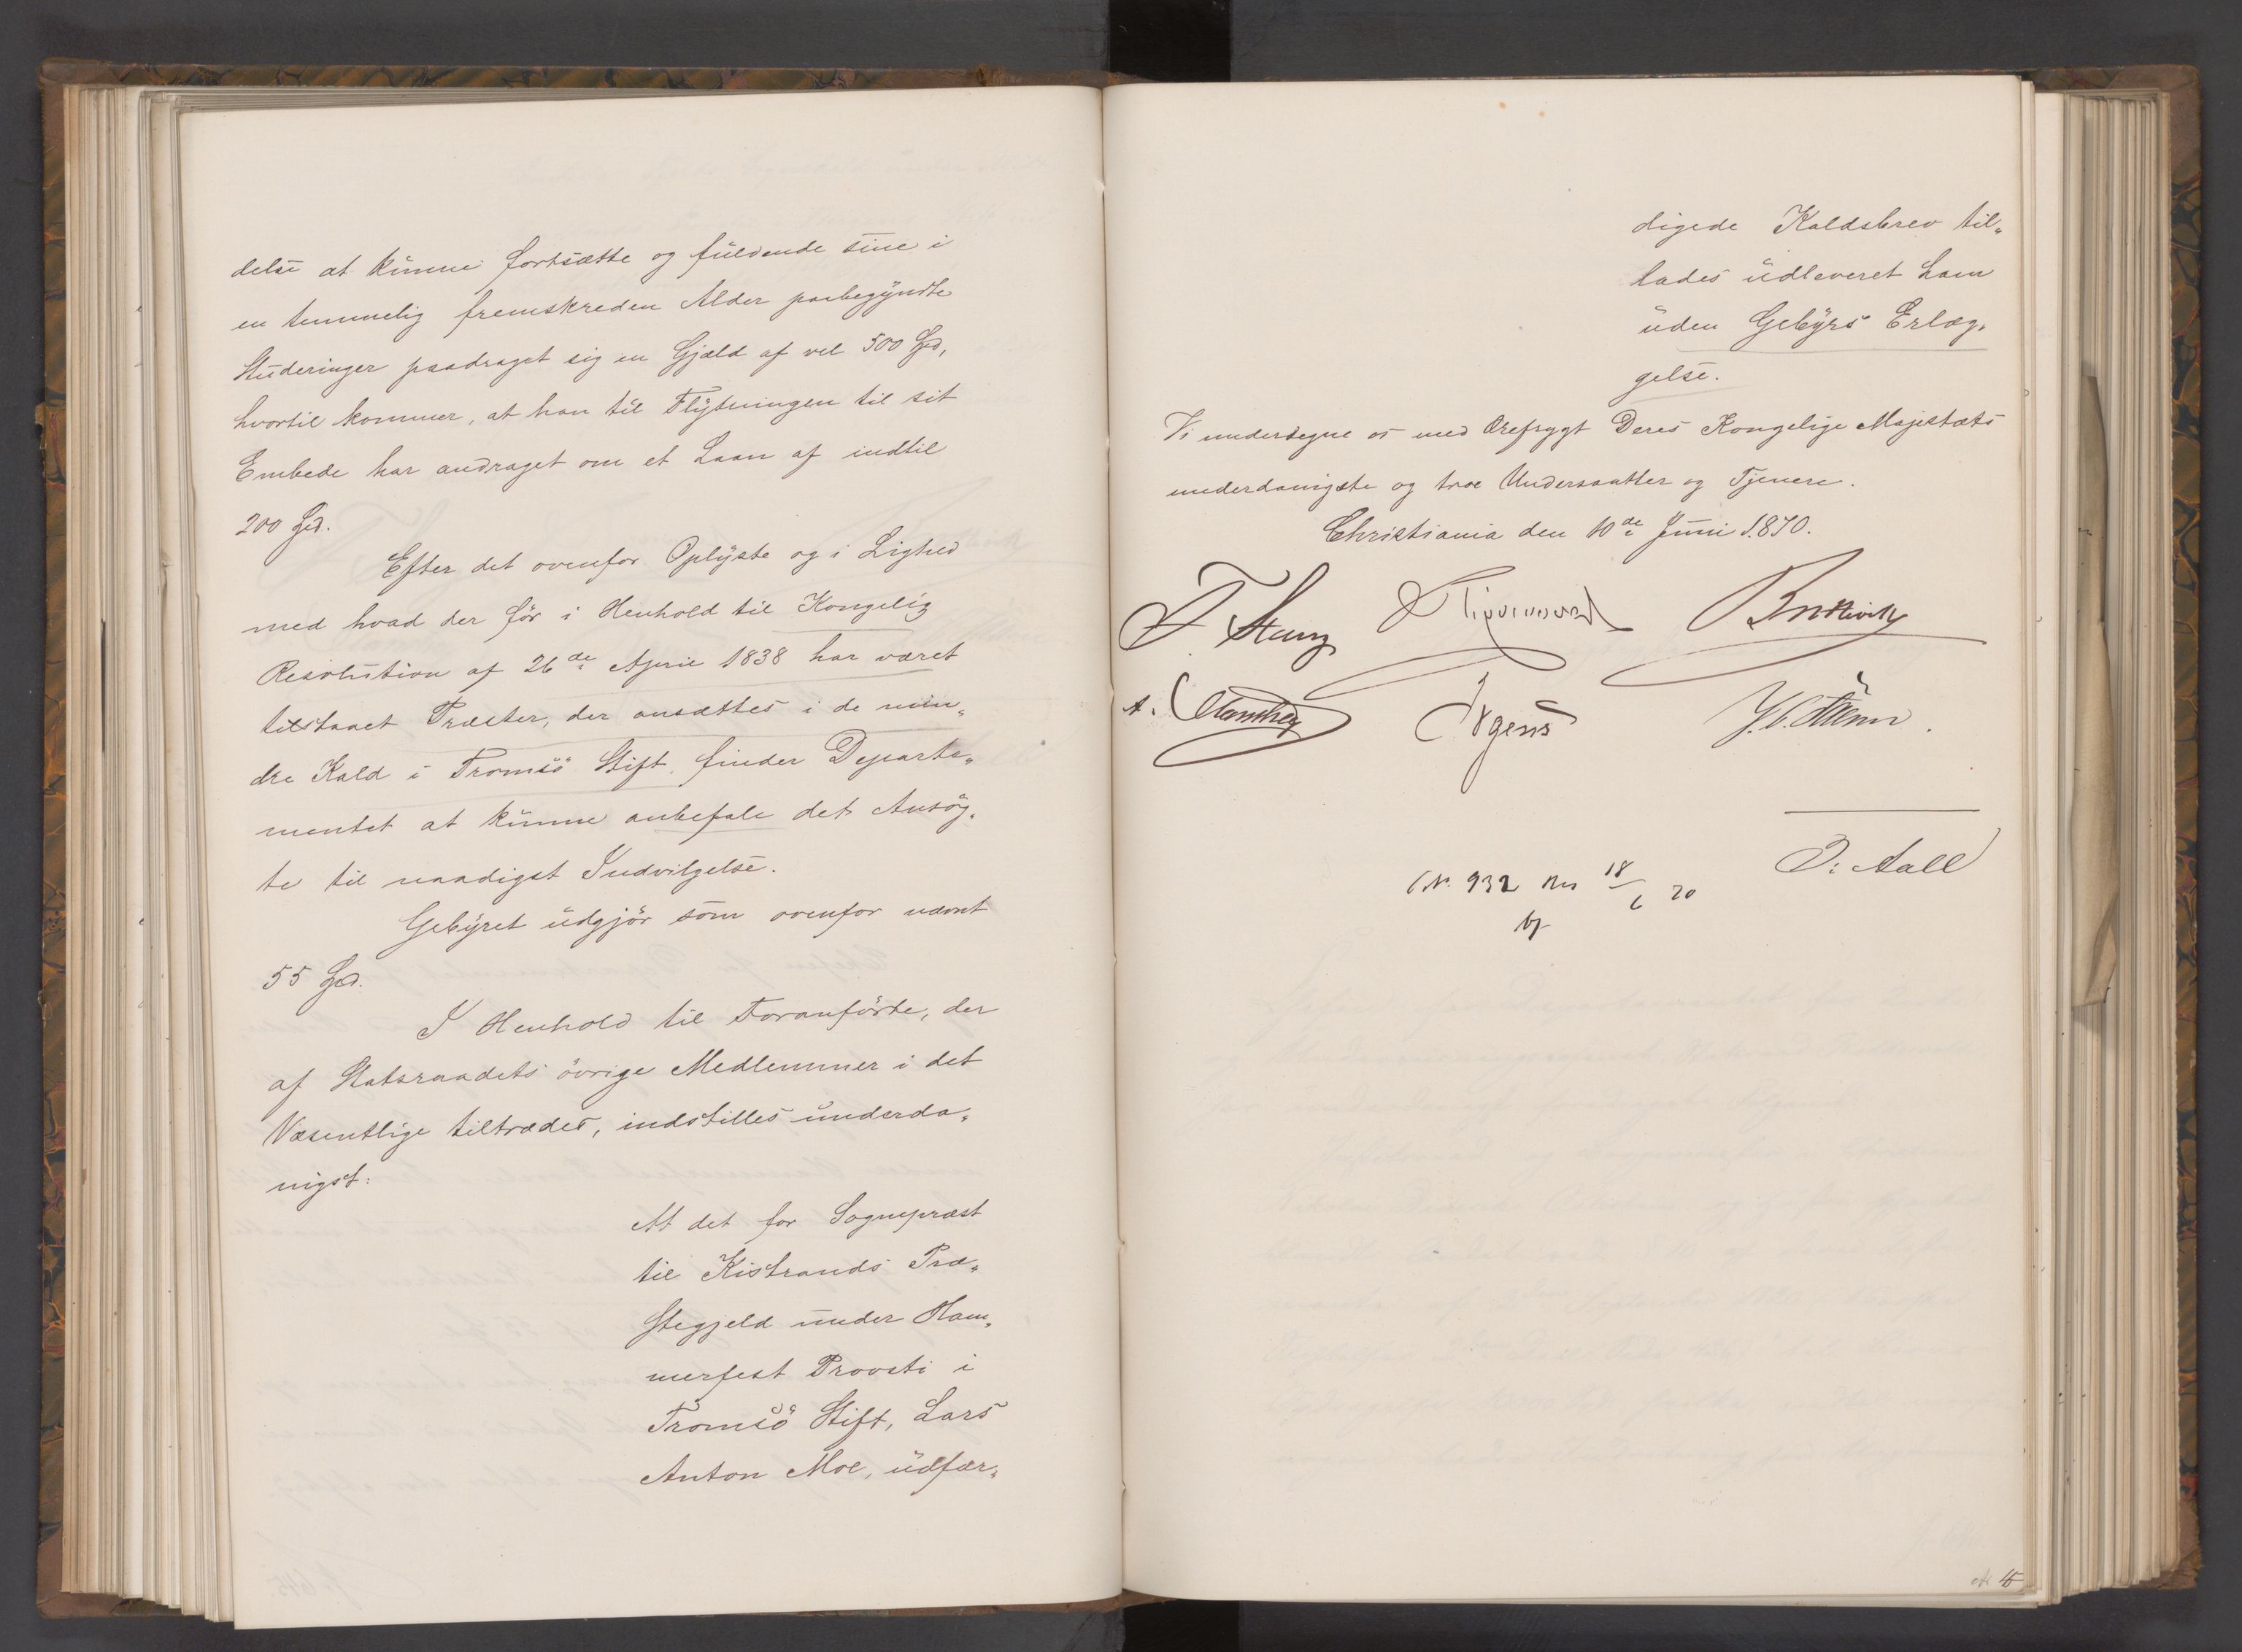 delse at kunne fortsætte og fuldende sine i
en temmelig fremskreden Alder paabegyndte
Studeringer paadraget sig en Gjæld af vel 500 Spd,
hvortil kommer, at han til Flytningen til sit
Embede har andraget om et Laan af indtil
200 Spd.
Efter det ovenfor Oplyste og i Lighed
med hvad der før i Henhold til Kongelig
Resolution af 26de April 1838 har været
tilstaaet Præster, der ansættes i de min„
dre Kald i Tromsö Stift, finder Departe„
mentet at kunne anbefale det Ansög„
te til naadigst Indvilgelse.
Gebyret udgjör som ovenfor nævnt
55 Spd.
I Henhold til Foranförte, der
af Statsraadets övrige Medlemmer i det
Væsentlige tiltrædes, indstilles underda„
nigst:
At det for Sognepræst
til Kistrands Præ„
stegjeld under Ham„
merfest Provsti i
Tromsö Stift, Lars
Anton Moe, udfær„
digede Kaldsbrev til„
lades udleveret ham
uden Gebyrs Erlæg„
gelse.
Vi undertegne os med Ærefrygt Deres Kongelige Majestæts
underdanigste og troe Undersaatter og Tjenere.
Christiania den 10de Juni 1870.
F. Stang
Irgens
O. Aall
N. 932 18/6 70